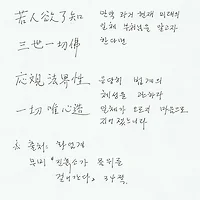 若人欲了知
만약 과거 현재 미래의
三世一切佛
일체 부처님을 알고자
한다면
応觀法界性
응당히 법계의
체성을 관하라
一切唯心造
일체가 오로지 마음으로
지어졌느니라
※ 출처: 화엄경
무비 "진흙소가 물위를
걸어가다", 34쪽.